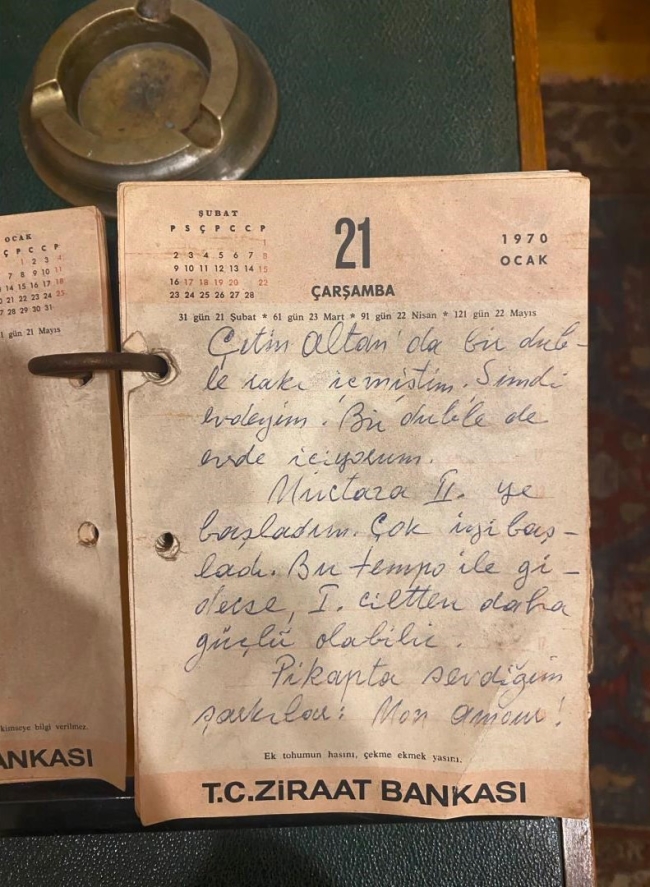 OCAK
Ç P C C P
1 gün 21 Mayıs
kimseye bilgi verilmez.
ANKASI
ŞUBAT
P S Ç P C C P
1
2 3 4 5 6 7 8
9 10 11 12 13 14 15
16 17 18 19 20 22
23 24 25 26 27 28
21
ÇARŞAMBA
1970
OCAK
31 gün 21 Şubat * 61 gün 23 Mart * 91 gün 22 Nisan * 121 gün 22 Mayıs
Çetin Altan'da bir dub-
le rakı içmiştim. Şimdi
evdeyim. Bir duble de
evde içiyorum.
Murtaza II. ye
başladım. Çok iyi baş-
ladı. Bu tempo ile gi-
derse, I. ciltten daha
güçlü olabilir.
Pikapta sevdiğim
şarkılar: Mon amour!
Ek tohumun hasını, çekme ekmek yasını.
T.C. ZİRAAT BANKASI